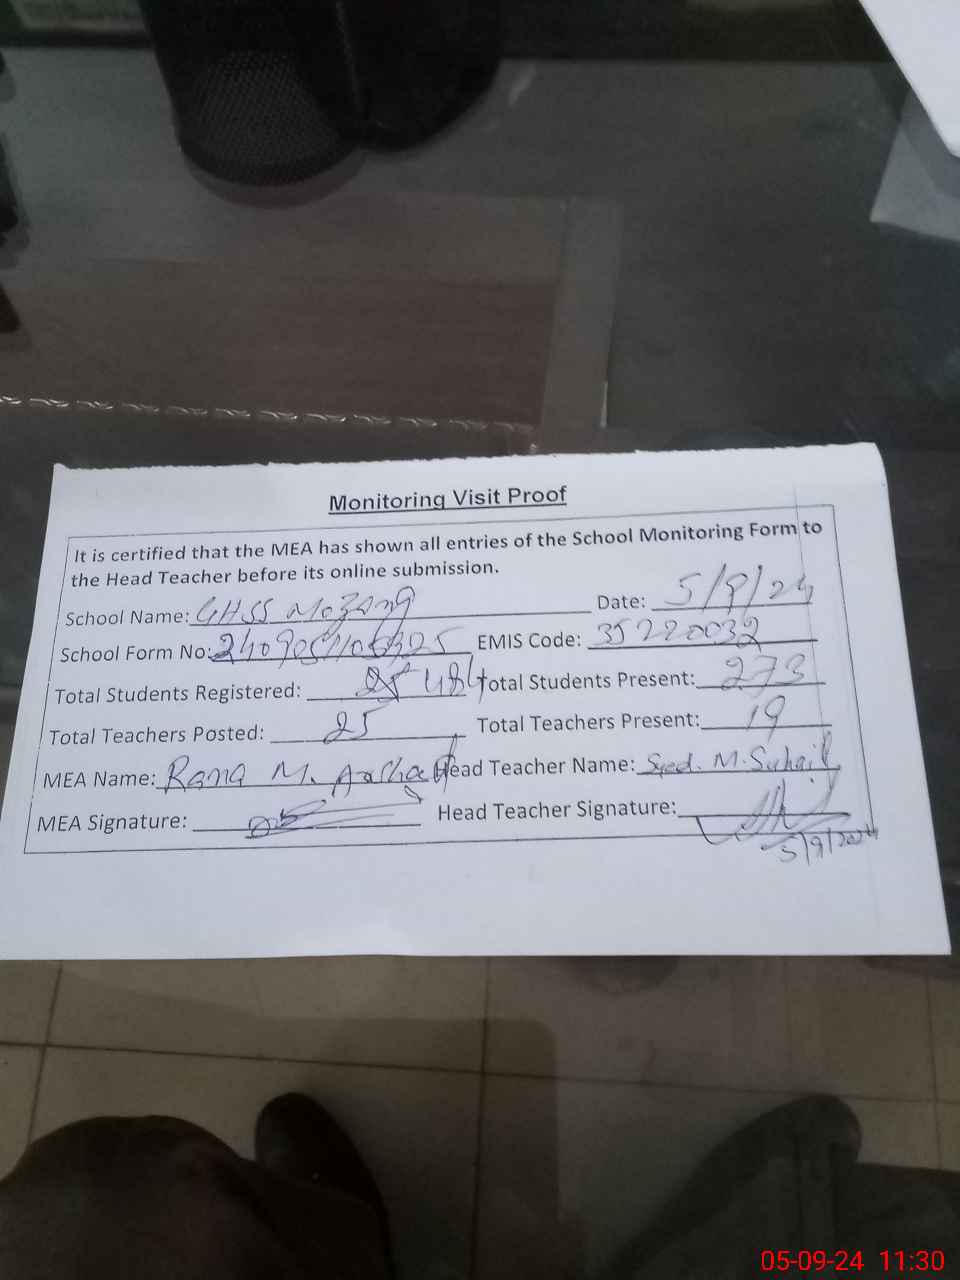 Monitoring Visit Proof
It is certified that the MEA has shown all entries of the School Monitoring Form to
the Head Teacher before its online submission.
School Name: GHSS Mozang Date: 5/9/24
School Form No: EMIS Code: 35220032
Total Students Registered: 484 Total Students Present: 273
Total Teachers Posted: 25 Total Teachers Present: 19
MEA Name: Rana M. Arshad Head Teacher Name: Syed. M. Suhail
MEA Signature: Head Teacher Signature:
5/9/2024
05-09-24 11:30